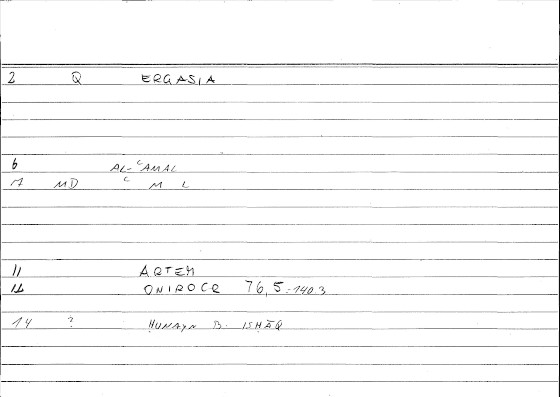 2 Q ERGASIA
6 AL-ʿAMAL
MD ʿ M L
11 ARTEM
12 ONIROCR 76,5:140.3
14 ? ḤUNAYN B. ISḤĀQ